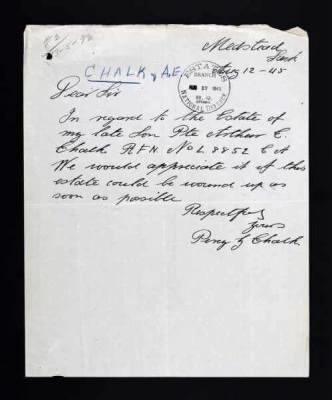 Medstead,
Sask
Aug 12-45
CHALK, A.E.
ESTATES
BRANCH
AUG 27 1945
NATIONAL DEFENCE
Dear Sir
In regard to the Estate of
my late Son Pte Arthur E.
Chalk R.F.N. No L 8852 C A
We would appreciate it if this
estate could be wound up as
soon as posible
Respectfuly
yours
Percy G Chalk